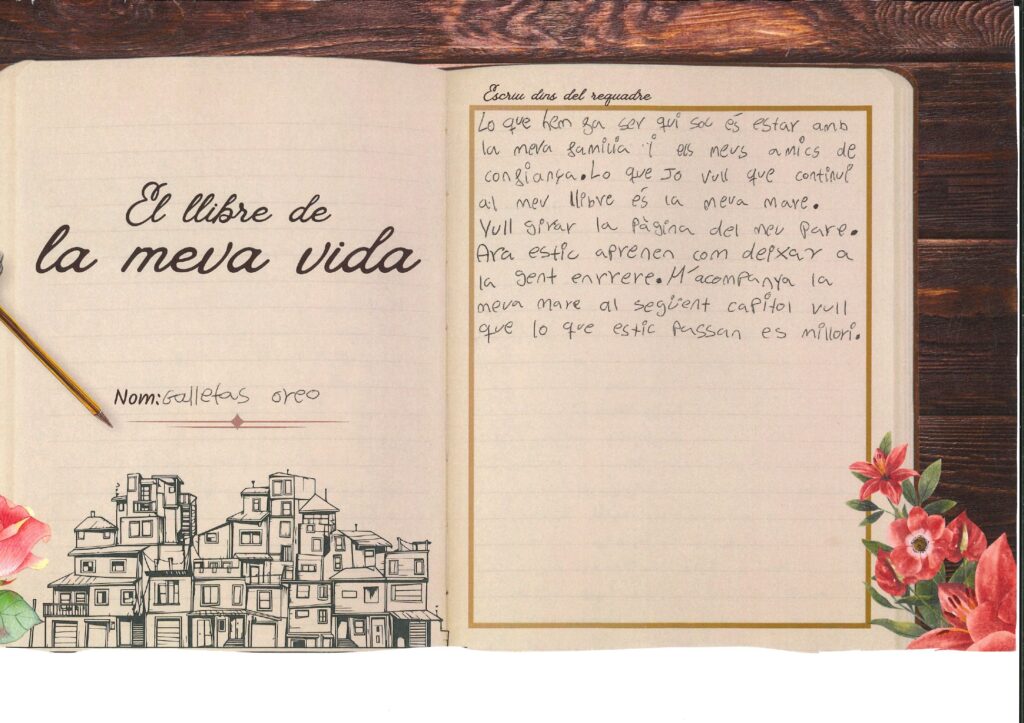 El llibre de
la meva vida
Nom: Galletas oreo
Escriu dins del requadre
Lo que hem fa ser qui soc és estar amb
la meva familia i els meus amics de
confiança. Lo que Jo vull que continuï
al meu llibre és la meva mare.
Vull girar la Pàgina del meu Pare.
Ara estic aprenen com deixar a
la gent enrrere. M'acompanya la
meva mare al següent capitol vull
que lo que estic passan es millori.